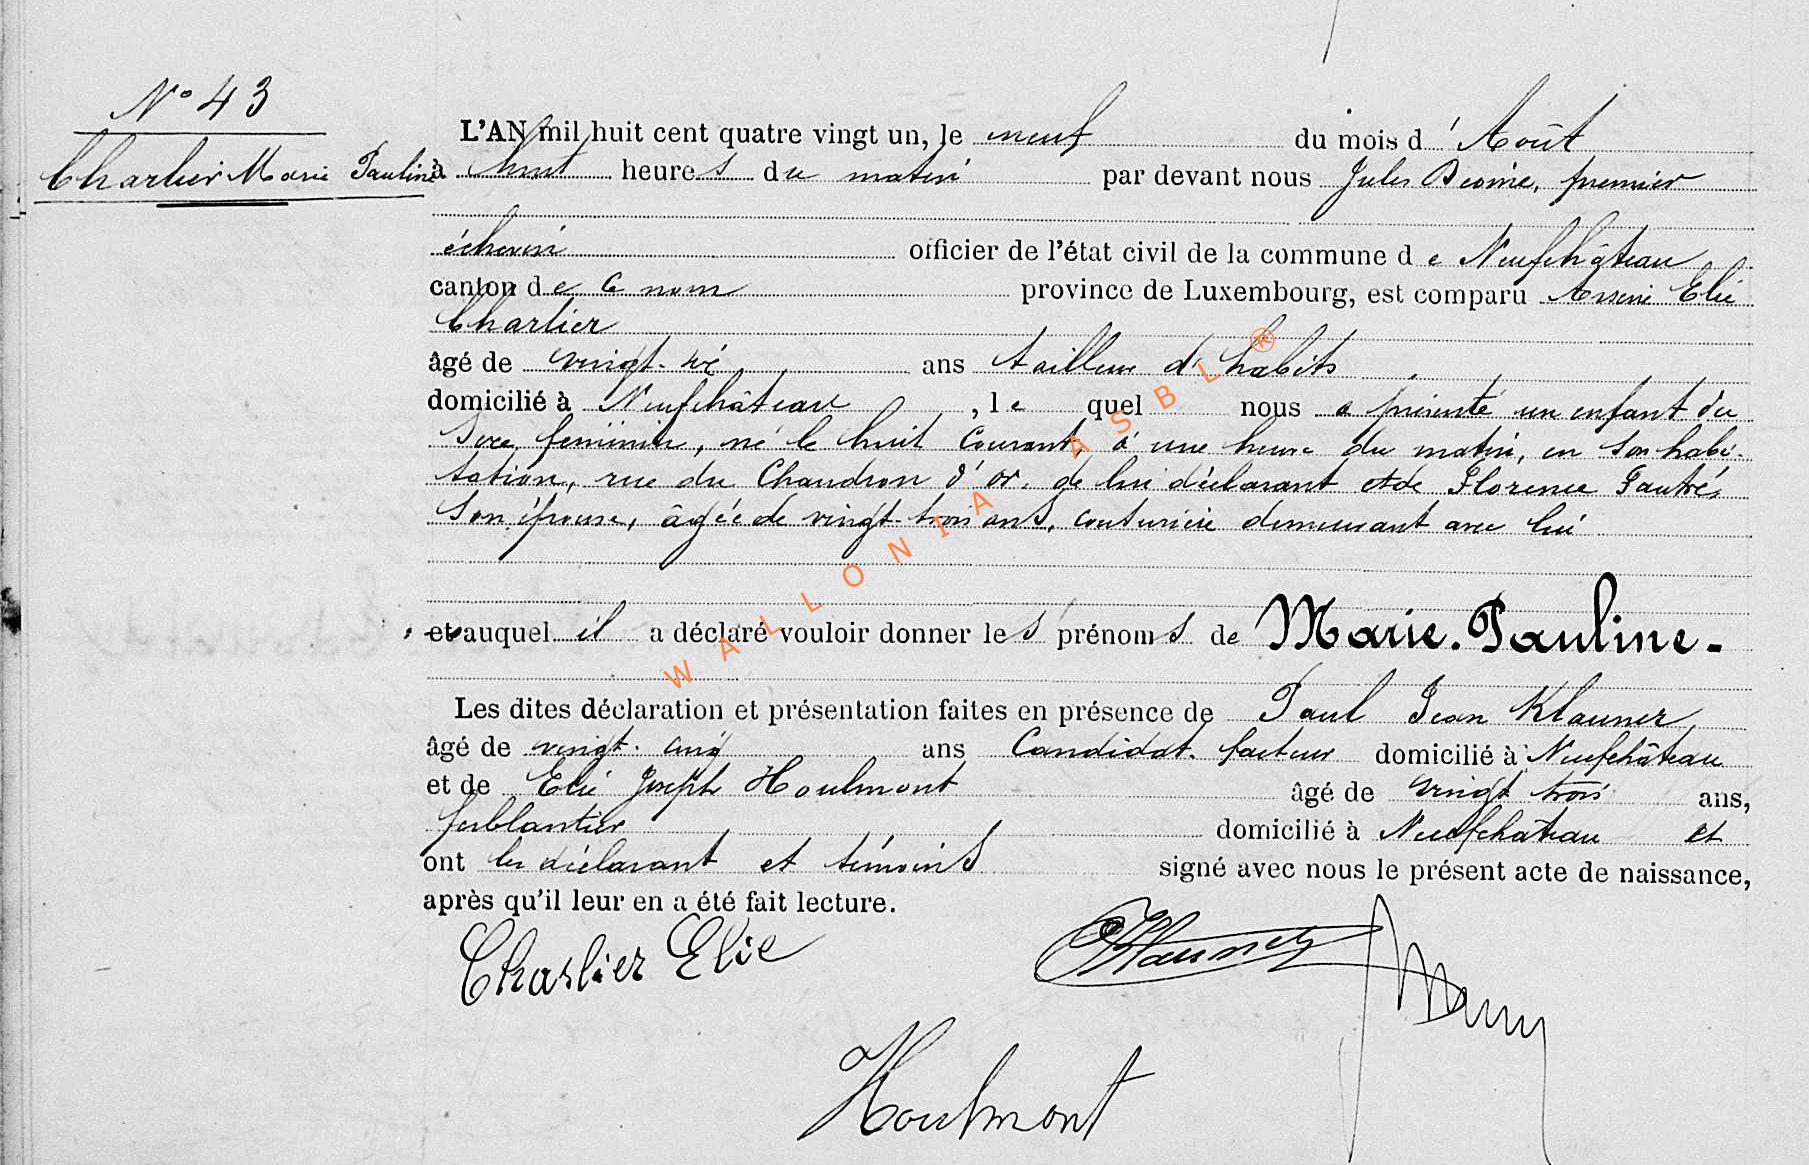 N° 43
Charlier Marie Pauline
L'AN mil huit cent quatre vingt un, le neuf du mois d'Août
à huit heures du matin par devant nous Jules premier
échevin officier de l'état civil de la commune de Neufchâteau
canton de ce nom province de Luxembourg, est comparu Arsène Elie
Charlier
âgé de vingt-six ans tailleur d'habits
domicilié à Neufchâteau, lequel nous a présenté un enfant du
sexe féminin, né le huit courant, à une heure du matin, en son habi-
tation, rue du Chaudron d'or, de lui déclarant et de Florence Pautré,
son épouse, âgée de vingt-trois ans, couturière demeurant avec lui
et auquel il a déclaré vouloir donner les prénoms de Marie-Pauline-
Les dites déclaration et présentation faites en présence de Paul Jean Klauner,
âgé de vingt-cinq ans Candidat-facteur domicilié à Neufchâteau
et de Elie Joseph Houlmont âgé de vingt trois ans,
ferblantier domicilié à Neufchâteau et
ont les déclarant et témoins signé avec nous le présent acte de naissance,
après qu'il leur en a été fait lecture.
Charlier Elie
Klauner
Houlmont
WALLONIA ASBL ®